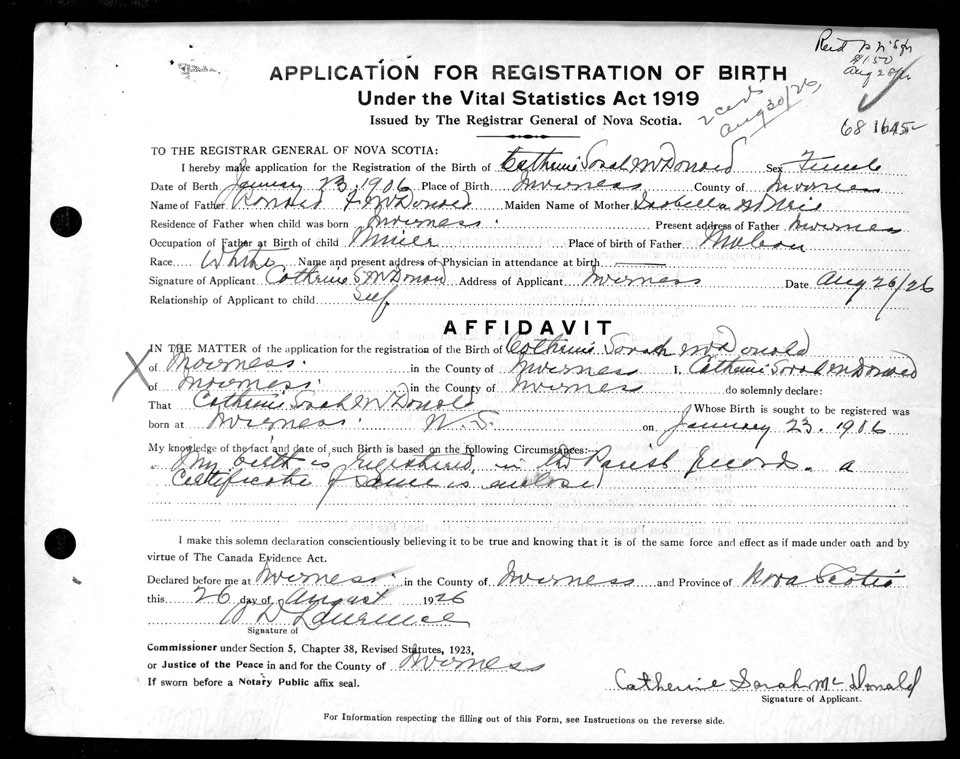 APPLICATION FOR REGISTRATION OF BIRTH
Under the Vital Statistics Act 1919
Issued by The Registrar General of Nova Scotia.
Aug 30/26
68 1645
TO THE REGISTRAR GENERAL OF NOVA SCOTIA:
I hereby make application for the Registration of the Birth of Catherine Sarah McDonald Sex Female
Date of Berth January 23, 1906 Place of Birth Inverness County of Inverness
Name of Father Ronald McDonald Maiden Name of Mother Isabella
Residence of Father when child was born Inverness. Present address of Father Inverness
Occupation of Father at Birth of child Miner Place of birth of Father Mabou
Race White Name and present address of Physician in attendance at birth
Signature of Applicant Catherine S McDonald Address of Applicant Inverness Date Aug 26/26
Relationship of Applicant to child Self
AFFIDAVIT
X IN THE MATTER of the application for the registration of the Birth of Catherine Sarah McDonald
of Inverness. in the County of Inverness I, Catherine Sarah McDonald
of Inverness. in the County of Inverness do solemnly declare:
That Catherine Sarah McDonald Whose Birth is sought to be registered was
born at Inverness. N.S. on January 23. 1906
My knowledge of the fact and date of such Birth is based on the following Circumstances:
My birth is registered in the Parish Records. a
Certificate of same is enclosed
I make this solemn declaration conscientiously believing it to be true and knowing that it is of the same force and effect as if made under oath and by
virtue of The Canada Evidence Act.
Declared before me at Inverness. in the County of Inverness and Province of Nova Scotia
this 26 day of August 1926
D Laurence
Signature of
Commissioner under Section 5, Chapter 38, Revised Statutes, 1923,
or Justice of the Peace in and for the County of Inverness
If sworn before a Notary Public affix seal.
Catherine Sarah McDonald
Signature of Applicant.
For Information respecting the filling out of this Form, see Instructions on the reverse side.